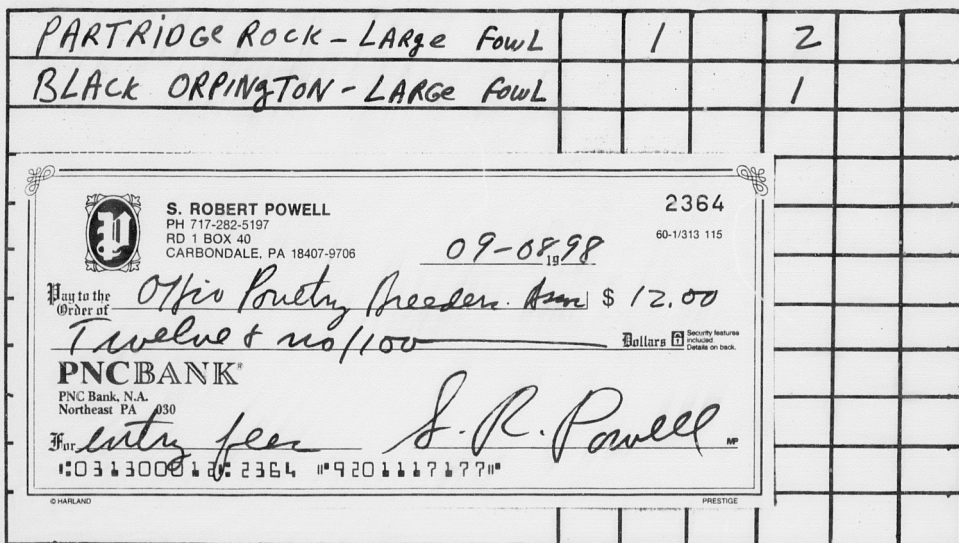 PARTRIDGE ROCK - LARge FowL 1 2
BLACK ORPINgTON - LARGe FowL 1
P
S. ROBERT POWELL 2364
PH 717-282-5197
RD 1 BOX 40 60-1/313 115
CARBONDALE, PA 18407-9706
09-08 1998
Pay to the Order of Ohio Poultry Breeders Assn $ 12.00
Twelve & no/100 Dollars Security features included Details on back.
PNCBANK®
PNC Bank, N.A.
Northeast PA 030
For entry fees S. R. Powell MP
⑆031300012⑆ 2364 ⑈9201117177⑈
© HARLAND PRESTIGE